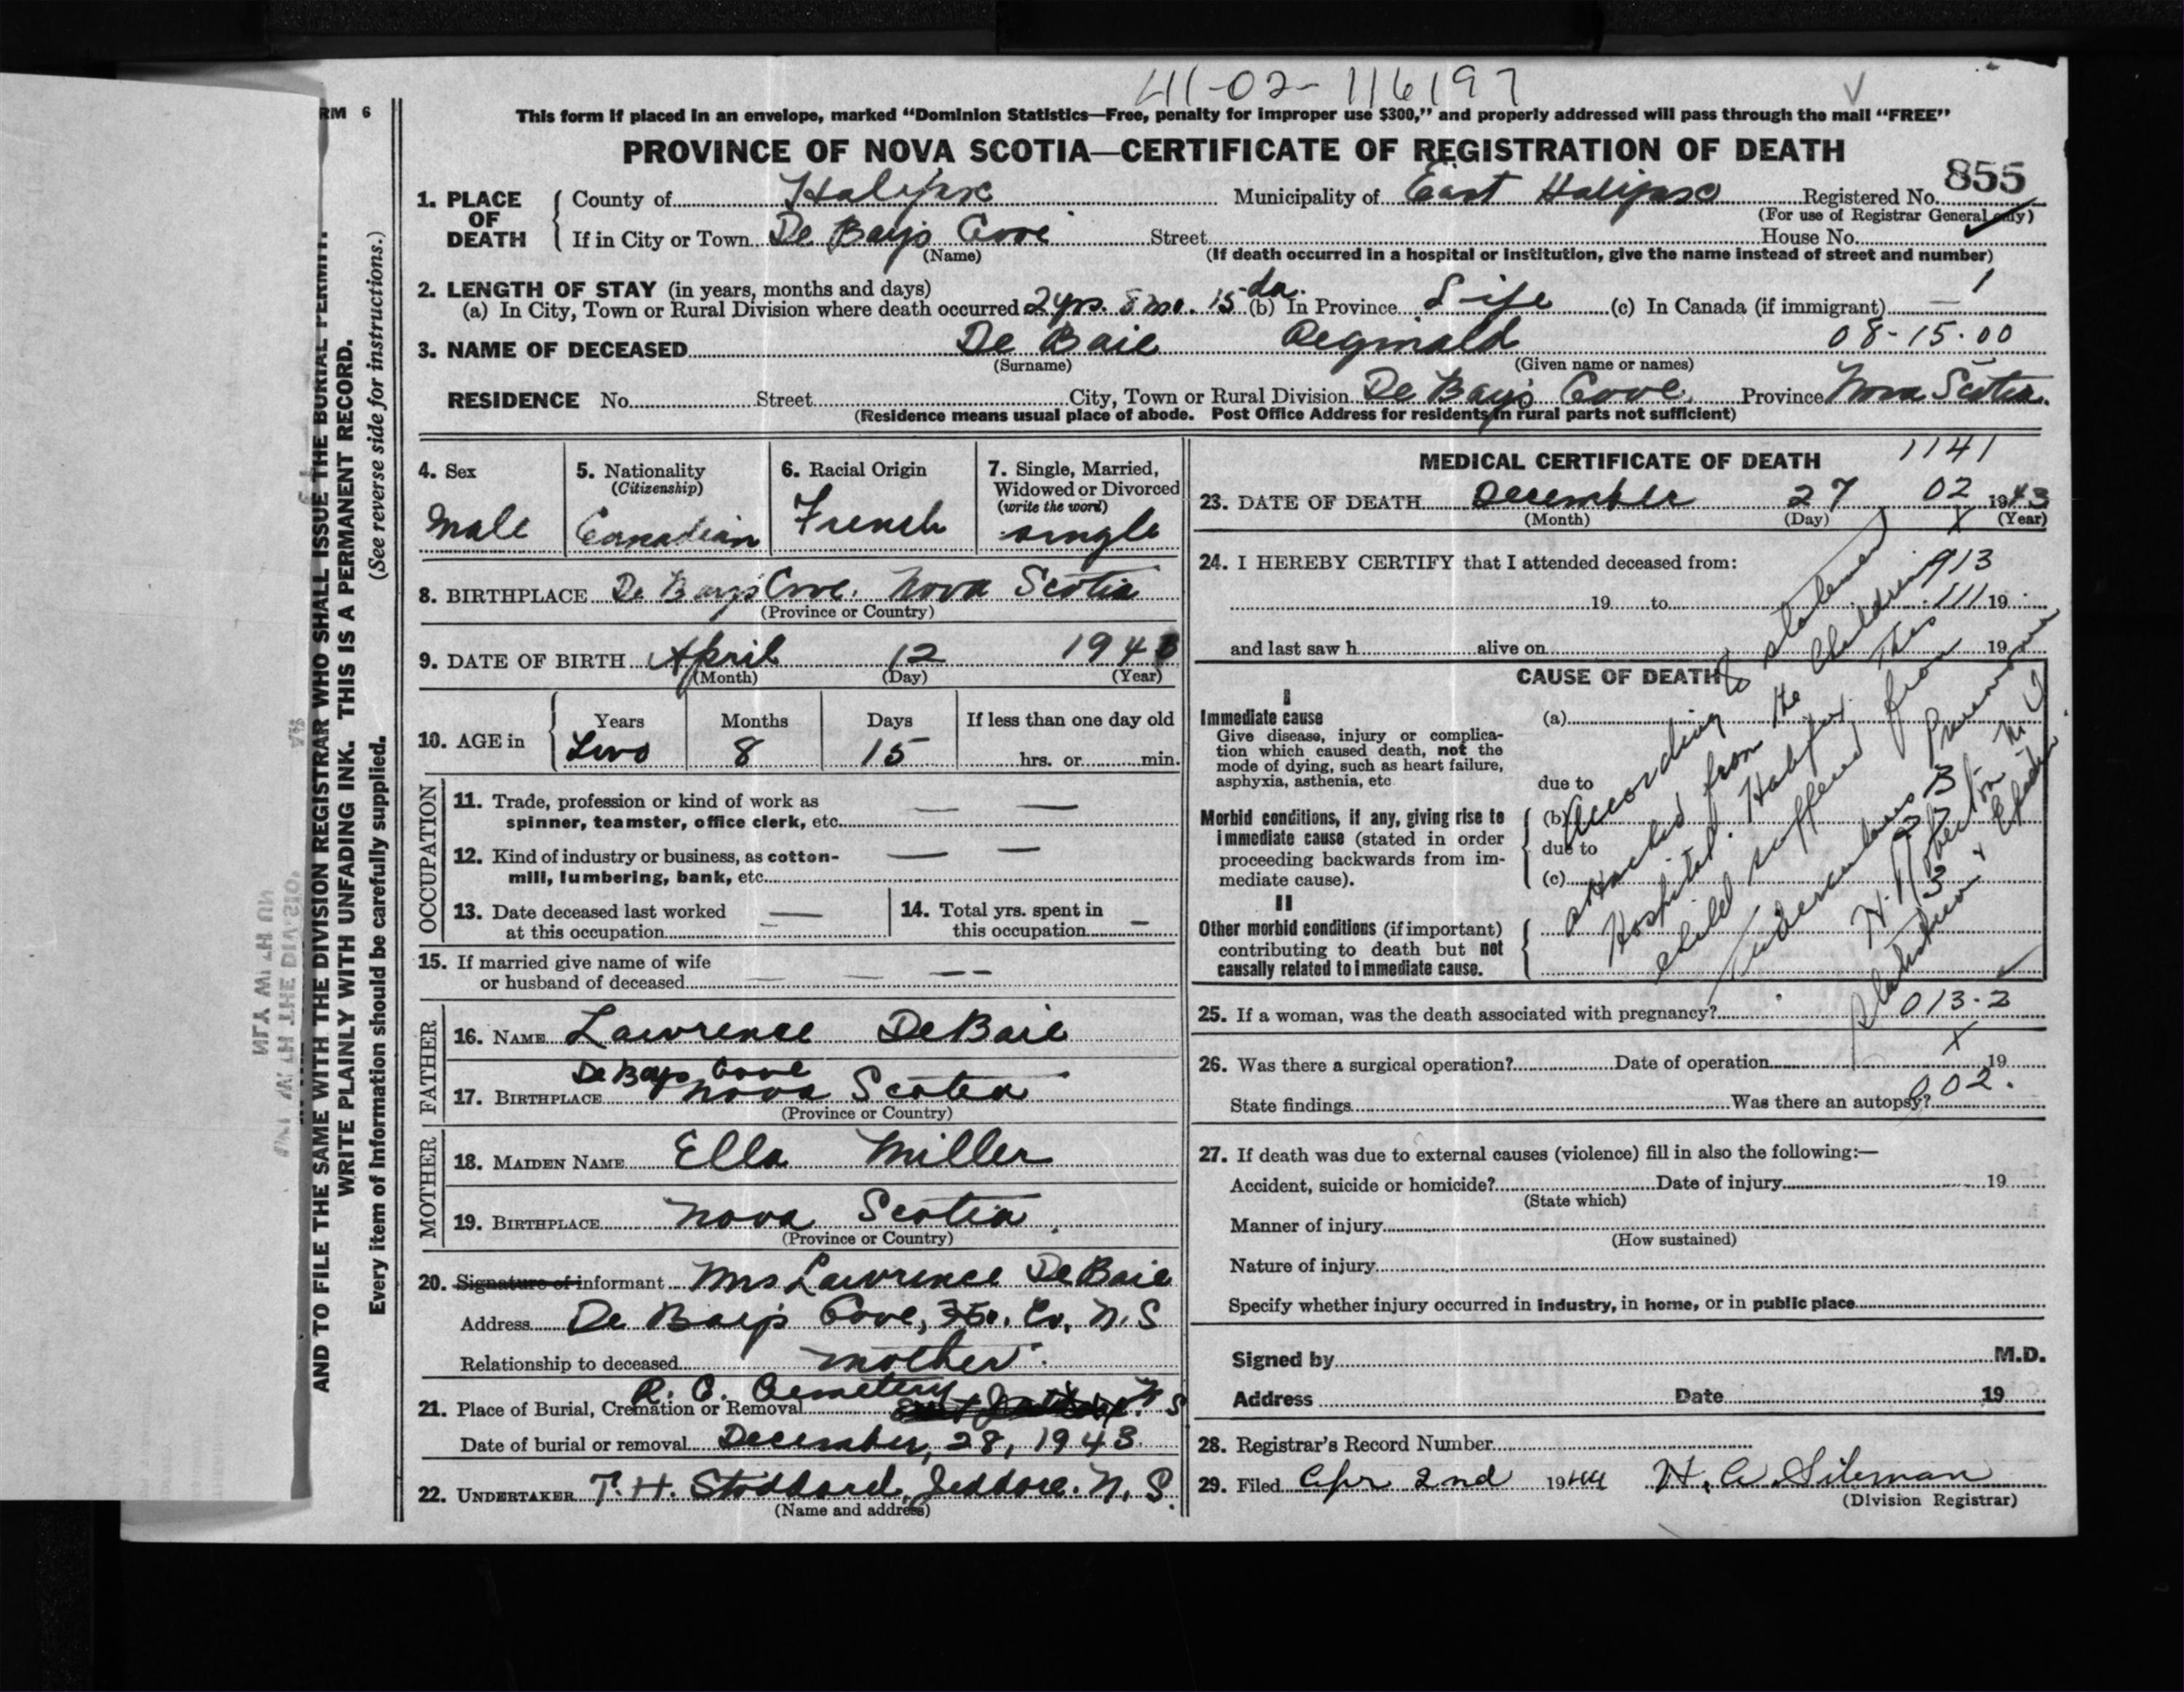 41-02-116197
RM 6
This form if placed in an envelope, marked "Dominion Statistics—Free, penalty for improper use $300," and properly addressed will pass through the mail "FREE"
PROVINCE OF NOVA SCOTIA—CERTIFICATE OF REGISTRATION OF DEATH
855
1. PLACE OF DEATH
County of Halifax Municipality of East Halifax Registered No.
(For use of Registrar General only)
If in City or Town De Bay's Cove Street House No.
(Name) (If death occurred in a hospital or institution, give the name instead of street and number)
2. LENGTH OF STAY (in years, months and days)
(a) In City, Town or Rural Division where death occurred 2 yrs. 8 mo. 15 da. (b) In Province Life (c) In Canada (if immigrant) — 1
08-15-00
3. NAME OF DECEASED De Baie Reginald
(Surname) (Given name or names)
RESIDENCE No. Street City, Town or Rural Division De Bay's Cove Province Nova Scotia.
(Residence means usual place of abode. Post Office Address for residents in rural parts not sufficient)
4. Sex
Male
5. Nationality
(Citizenship)
Canadian
6. Racial Origin
French
7. Single, Married,
Widowed or Divorced
(write the word)
single
8. BIRTHPLACE De Bay's Cove. Nova Scotia
(Province or Country)
9. DATE OF BIRTH April 12 194
(Month) (Day) (Year)
10. AGE in
Years Months Days If less than one day old
Two 8 15 hrs. or min.
OCCUPATION
11. Trade, profession or kind of work as
spinner, teamster, office clerk, etc. — —
12. Kind of industry or business, as cotton-
mill, lumbering, bank, etc. — —
13. Date deceased last worked
at this occupation —
14. Total yrs. spent in
this occupation —
15. If married give name of wife
or husband of deceased — — — —
FATHER
16. NAME Lawrence DeBaie
De Bays Cove
17. BIRTHPLACE Nova Scotia
(Province or Country)
MOTHER
18. MAIDEN NAME Ella Miller
19. BIRTHPLACE Nova Scotia.
(Province or Country)
20. Signature of informant Mrs Lawrence DeBaie
Address De Bay's Cove, Co, N.S
Relationship to deceased mother.
R. C. Cemetery
21. Place of Burial, Cremation or Removal N S
Date of burial or removal December, 28, 1943.
22. UNDERTAKER T. H. Stoddard, Jeddore. N. S.
(Name and address)
MEDICAL CERTIFICATE OF DEATH
1141
23. DATE OF DEATH December 27 02 1943
(Month) (Day) (Year)
24. I HEREBY CERTIFY that I attended deceased from:
913
19 to 111 19
and last saw h alive on 19
CAUSE OF DEATH
I
Immediate cause
Give disease, injury or complica-
tion which caused death, not the
mode of dying, such as heart failure,
asphyxia, asthenia, etc
(a)
due to
Morbid conditions, if any, giving rise to
immediate cause (stated in order
proceeding backwards from im-
mediate cause).
(b)
due to
(c)
II
Other morbid conditions (if important)
contributing to death but not
causally related to immediate cause.
According to statement
attached from the Children
Hospital. Halifax. This
child suffered from
Tuberculous Pneumonia
25. If a woman, was the death associated with pregnancy?
013-2
26. Was there a surgical operation? Date of operation 19
State findings Was there an autopsy? 002.
27. If death was due to external causes (violence) fill in also the following:—
Accident, suicide or homicide? Date of injury 19
(State which)
Manner of injury
(How sustained)
Nature of injury
Specify whether injury occurred in industry, in home, or in public place
Signed by M.D.
Address Date 19
28. Registrar's Record Number
29. Filed Apr 2nd 1944 H. A. Siteman
(Division Registrar)
AND TO FILE THE SAME WITH THE DIVISION REGISTRAR WHO SHALL ISSUE THE BURIAL PERMIT.
WRITE PLAINLY WITH UNFADING INK. THIS IS A PERMANENT RECORD.
Every item of information should be carefully supplied. (See reverse side for instructions.)